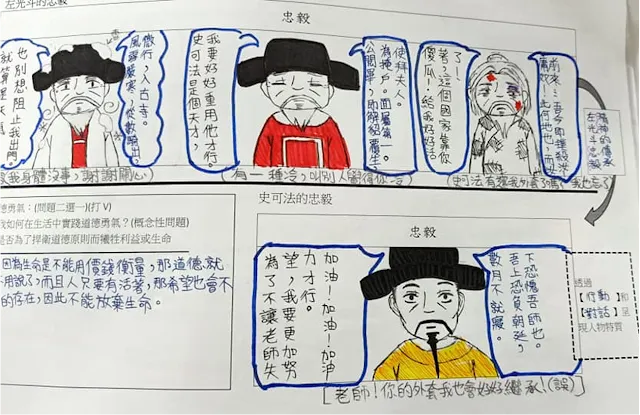 左光斗的忠毅
忠毅
也別想阻止我出門
就算是天
微行，入古寺。
風雪嚴寒，從數騎出
我要好好重用他才行。
史可法是個天才，
使拜夫人。
為機戶。面署第一。
公閱畢，即解貂覆生
了！
著，這個國家靠你
傻瓜！給我好好活
我身體沒事，謝謝關心
(有一種冷，叫別人覺得你冷)
精神的傳承
左光斗
史可法的忠毅
忠毅
道德勇氣：(問題二選一)(打 V)
我如何在生活中實踐道德勇氣？(概念性問題)
是否為了捍衛道德原則而犧牲利益或生命
因為生命是不能用價錢衡量，那道德就
不用說了，而且人只要有活著，那希望也會不
的存在，因此不能放棄生命。
加油！加油！加油
力才行。
望，我要更加努
為了不讓老師失
下恐愧吾師也。
吾上恐負朝廷，
數月不就寢。
透過
【行動】和
【對話】呈
現人物特質
[老師！你的外套我也會好好繼承！(誤)]